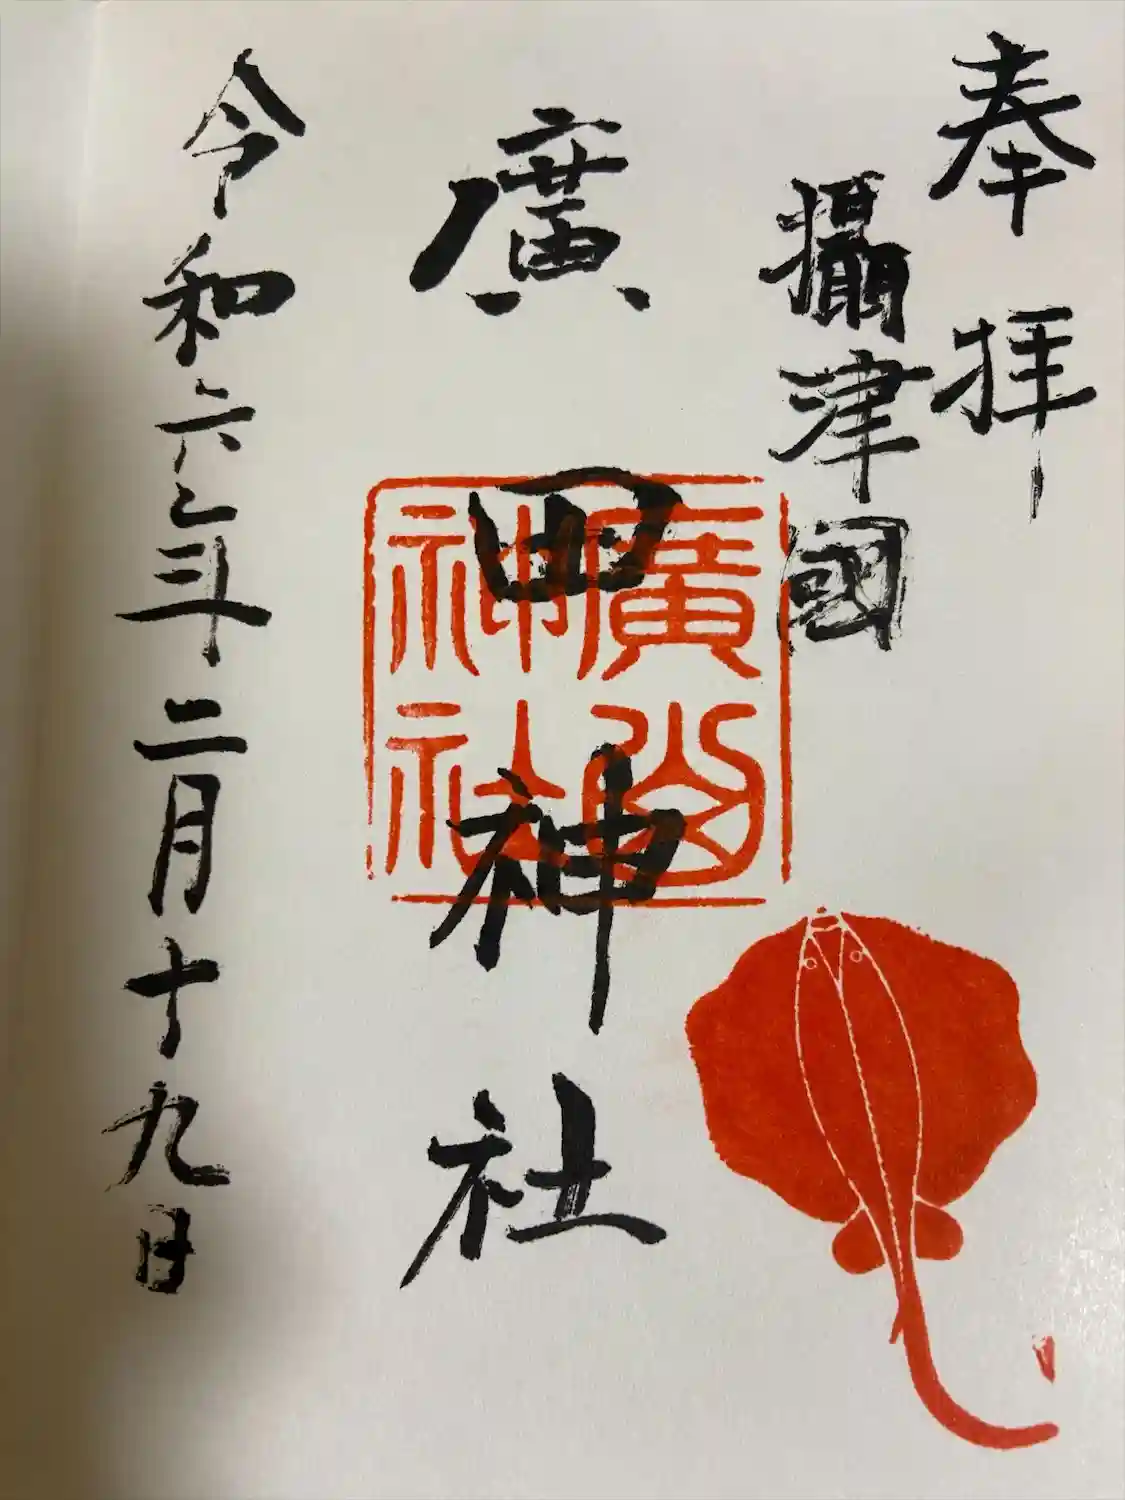 奉拝
攝津國
廣田神社
令和六年二月十九日
廣田
神社